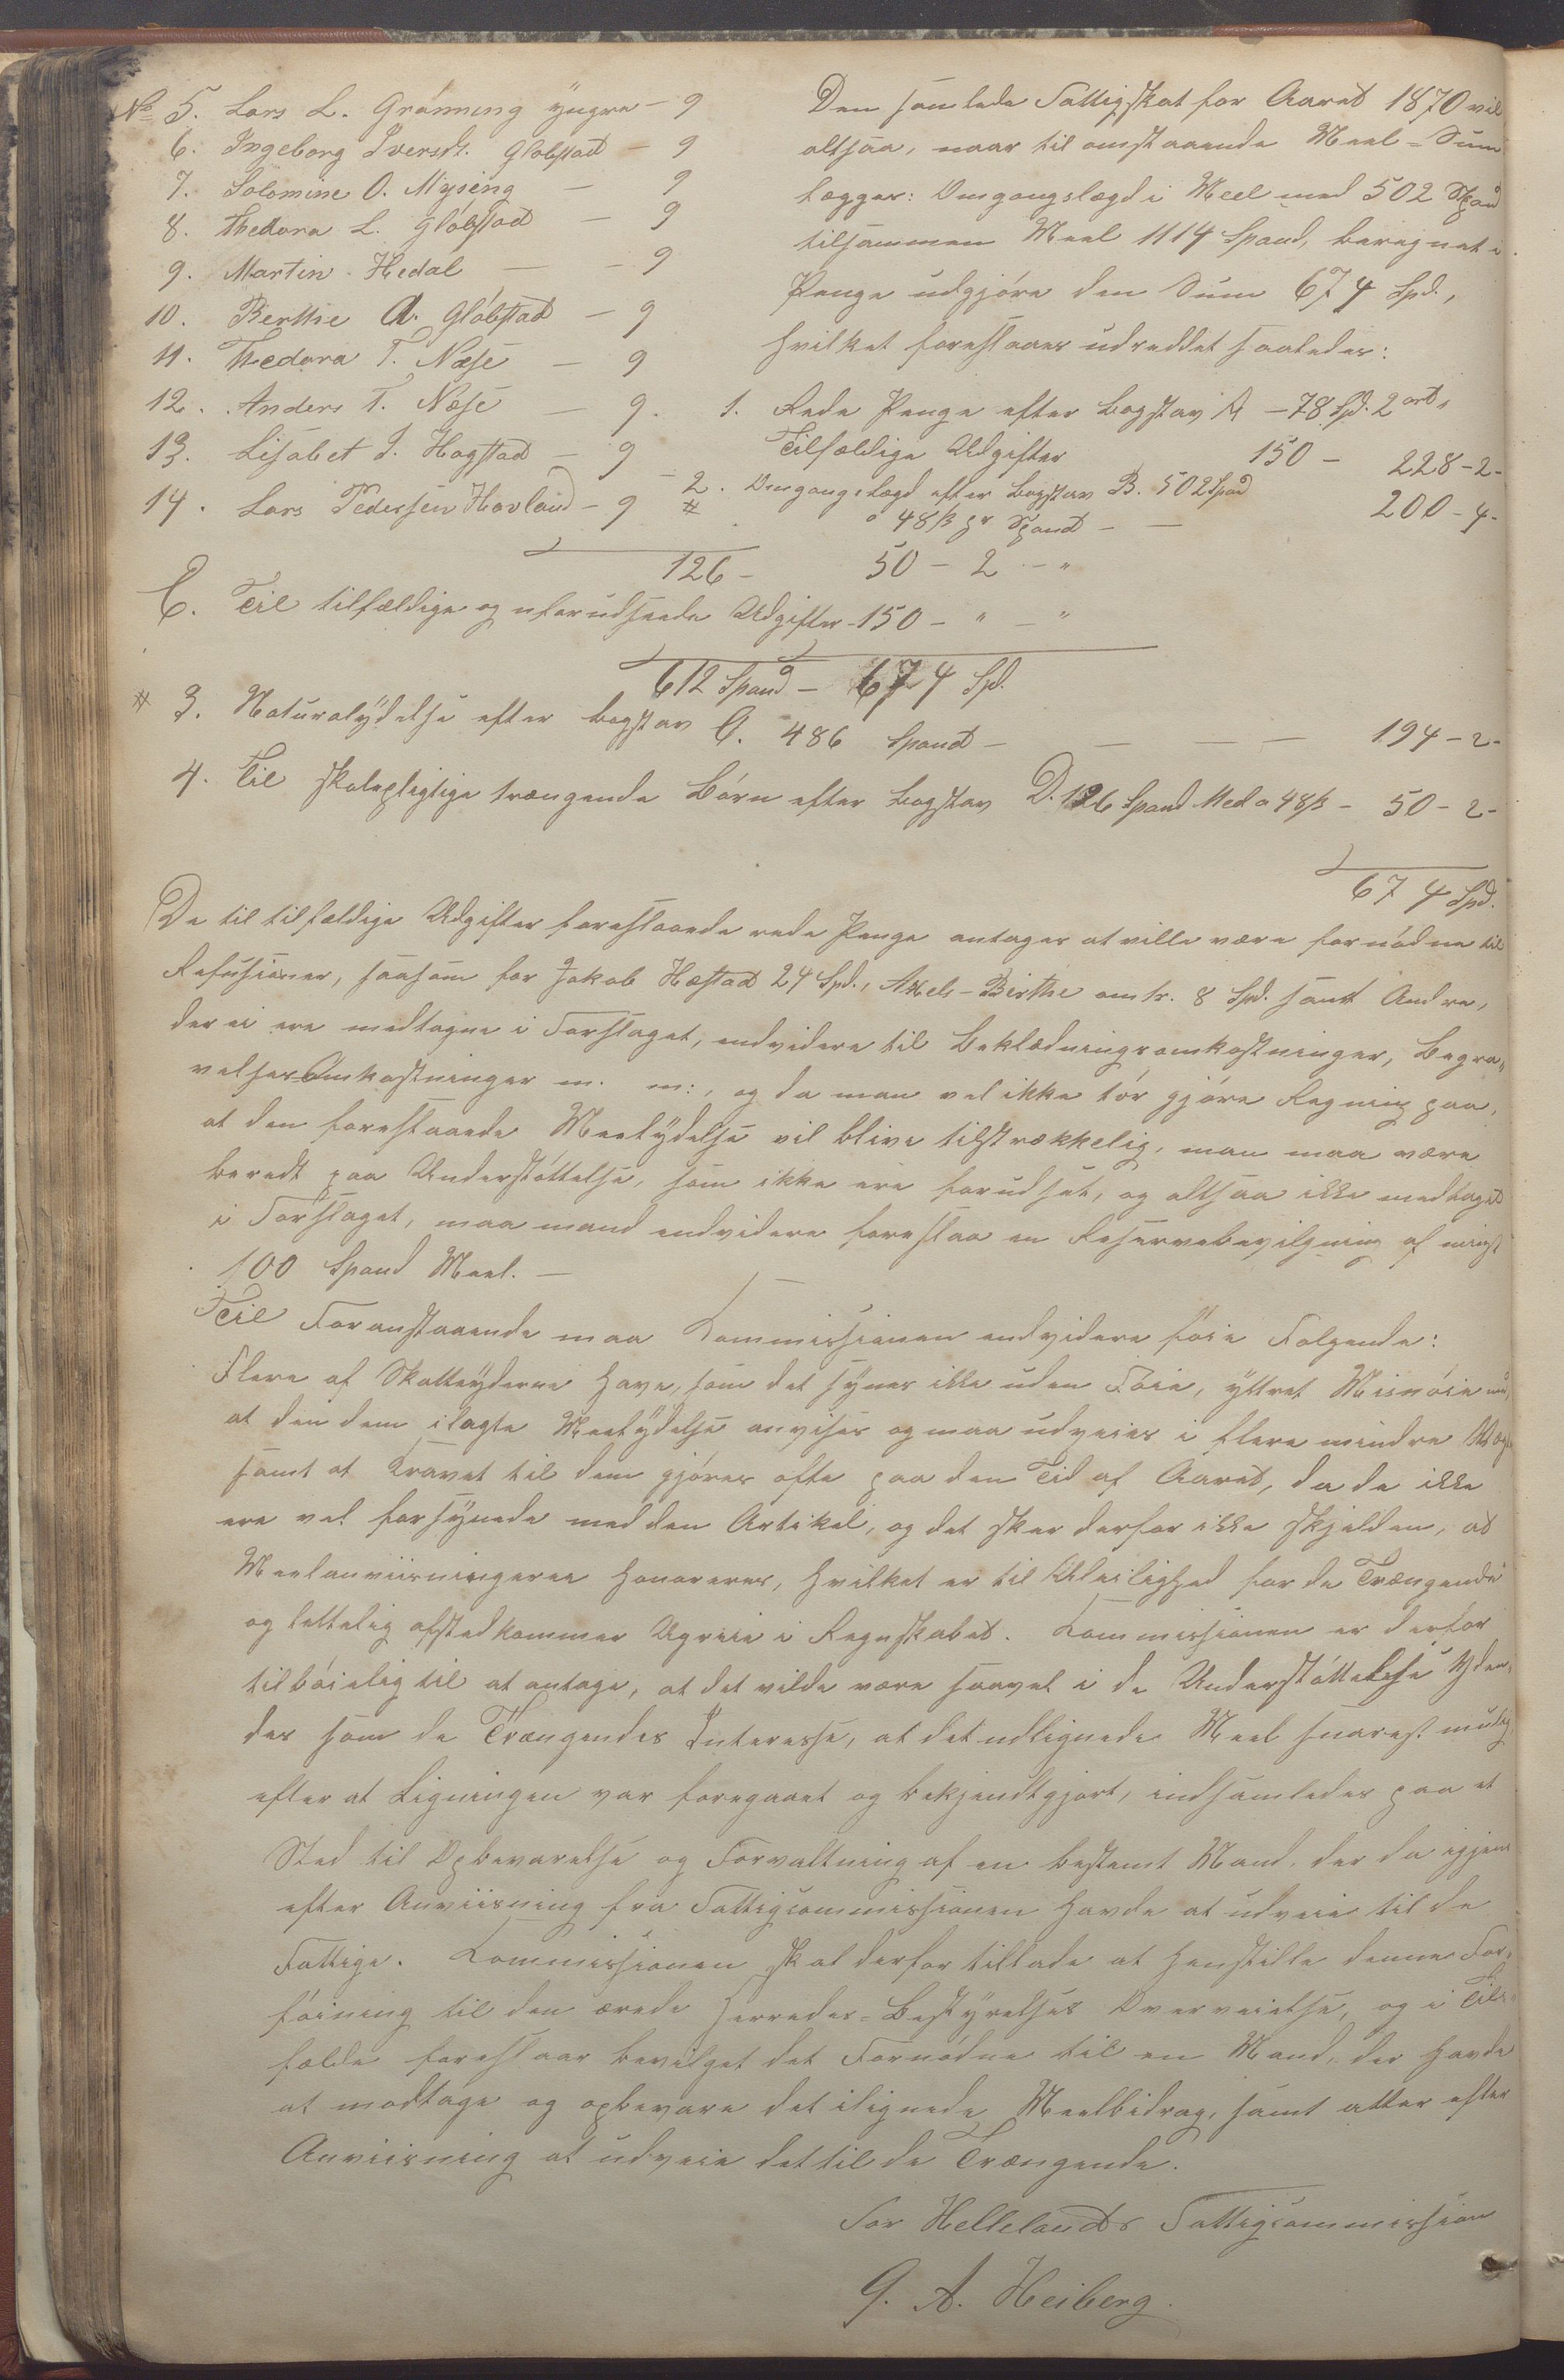 No 5. Lars L. Grönning yngre - 9
6. Ingeborg Iversdr. Glöbstad - 9
7. Solomine O. Mysing - 9
8. Thedora L. Glöbstad - 9
9. Martin Hedal - - 9
10. Berthe A. Glöbstad - 9
11. Thedora T. Næse - 9
12. Anders T. Næse - 9.
13. Lisabet J. Hogstad - 9
14. Lars Pedersen Havland - 9
126 - 50 - 2 - "
E. Til tilfældige og uforudseede Udgifter - 150 - " - "
612 Spand - 674 Spd.
Den samlede Fattigskat for Aaret 1870 vil
altsaa, naar til omstaaende Meel-Sum
lægges: Omgangslægd i Meel med 502 Spand
tilsammen Meel 1114 Spand, beregnet i
Penge udgjöre den Sum 674 Spd.,
hvilket foreslaaes udreddet saaledes:
1. Rede Penge efter Bogstav A - 78 Spd. 2 ort "
Tilfældige Udgifter 150 - 228 - 2 -
2. Omgangslægd efter Bogstav B. 502 Spand
# à 48 ß pr Spand - - 200 - 4 -
# 3. Naturalydelse efter Bogstav C. 486 Spand - - - - 194 - 2 -
4. Til skolepligtige trængende Börn efter Bogstav D. 126 Spand Meel a 48 ß - 50 - 2 -
674 Spd.
De til tilfældige Udgifter foreslaaede rede Penge antages at ville være fornödne til
Refusioner, saasom for Jakob Hæstad 24 Spd., Axels-Birthe omtr. 8 Spd. samt Andre,
der ei ere medtagne i Forslaget, endvidere til Beklædningsomkostninger, Begra-
velses Omkostninger m. m:, og da man vel ikke tör gjöre Regning paa,
at den foreslaaede Meelydelse vil blive tilstrækkelig, man maa være
beredt paa Understöttelse, som ikke ere forudset, og altsaa ikke medtaget
i Forslaget, maa mand endvidere foreslaa en Reservebevilgning af mindst
100 Spand Meel. -
Til Foranstaaende maa Kommissionen endvidere föie Følgende:
Flere af Skatteyderne have, som det synes ikke uden Föie, yttret Misnöie med,
at den dem ilagte Meelydelse anvises og maa udveies i flere mindre
samt at Kravet til dem gjöres ofte paa den Tid af Aaret, da de ikke
ere vel forsynede med den Artikel, og det sker derfor ikke skjelden, at
Meelanviisningerne honoreres, hvilket er til Uleilighed for de Trængende
og lettelig afstedkommer Ugreie i Regnskabet. Kommissionen er derfor
tilböielig til at antage, at det vilde være saavel i de Understöttelse Yden-
des som de Trængendes Interesse, at det udlignede Meel snarest mulig,
efter at Ligningen var foregaaet og bekjendtgjort, indsamledes paa et
Sted til Opbevarelse og Forvaltning af en bestemt Mand, der da igjen
efter Anviisning fra Fattigcommissionen havde at udveie til de
Fattige. Kommissionen skal derfor tillade at henstille denne For-
föining til den ærede Herreds-Bestyrelses Overveielse, og i Til-
fælde foreslaar bevilget det Fornödne til en Mand, der havde
at modtage og opbevare det ilignede Meelbidrag, samt atter efter
Anviisning at udveie det til de Trængende.
For Hellelands Fattigcommission
G. A. Heiberg.